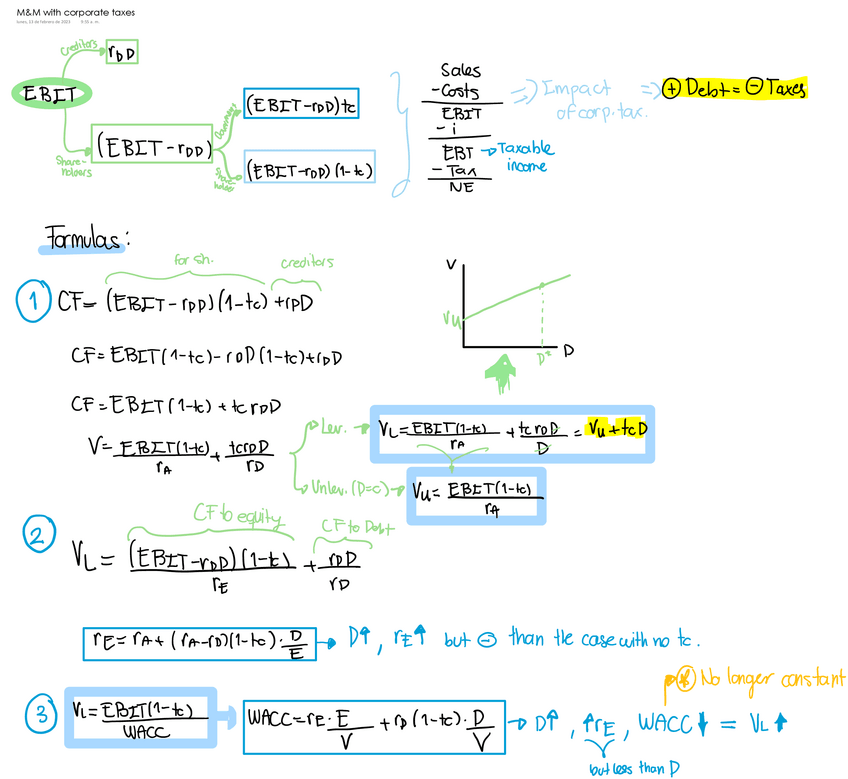 M&M with corporate taxes
lunes, 13 de febrero de 2023 9:35 a. m.
creditors
rDD
EBIT
Share-
holders
(EBIT-rDD)
(EBIT-rDD)tc
Share
holder
(EBIT-rDD)(1-tc)
Sales
-Costs
EBIT
- i
EBT → Taxable
income
- Tax
NE
=> Impact
of corp. tax.
=> ⊕ Debt = ⊖ Taxes
Formulas:
for sh.
creditors
① CF= (EBIT-rDD)(1-tc)+rDD
CF=EBIT(1-tc)-rDD(1-tc)+rDD
CF=EBIT(1-tc)+tcrDD
V= EBIT(1-tc)/rA + tcrDD/rD
V
Vu
D*
D
Lev. → VL= EBIT(1-tc)/rA + tcrDD/D = Vu+tcD
Unlev. (D=c) → Vu= EBIT(1-tc)/rA
CF to equity
CF to Debt
② VL= (EBIT-rDD)(1-tc)/rE + rDD/rD
rE=rA+(rA-rD)(1-tc)·D/E → D↑, rE↑ but ⊖ than the case with no tc.
No longer constant
③ VL= EBIT(1-tc)/WACC
WACC=rE·E/V + rD(1-tc)·D/V → D↑, ↑rE, WACC↓ = VL↑
but less than D